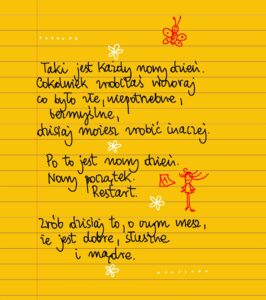 Taki jest każdy nowy dzień.
Cokolwiek zrobiłaś wczoraj
co było złe, niepotrzebne,
bezmyślne,
dzisiaj możesz zrobić inaczej.
Po to jest nowy dzień.
Nowy początek.
Restart.
Zrób dzisiaj to, o czym wiesz,
że jest dobre, słuszne
i mądre.